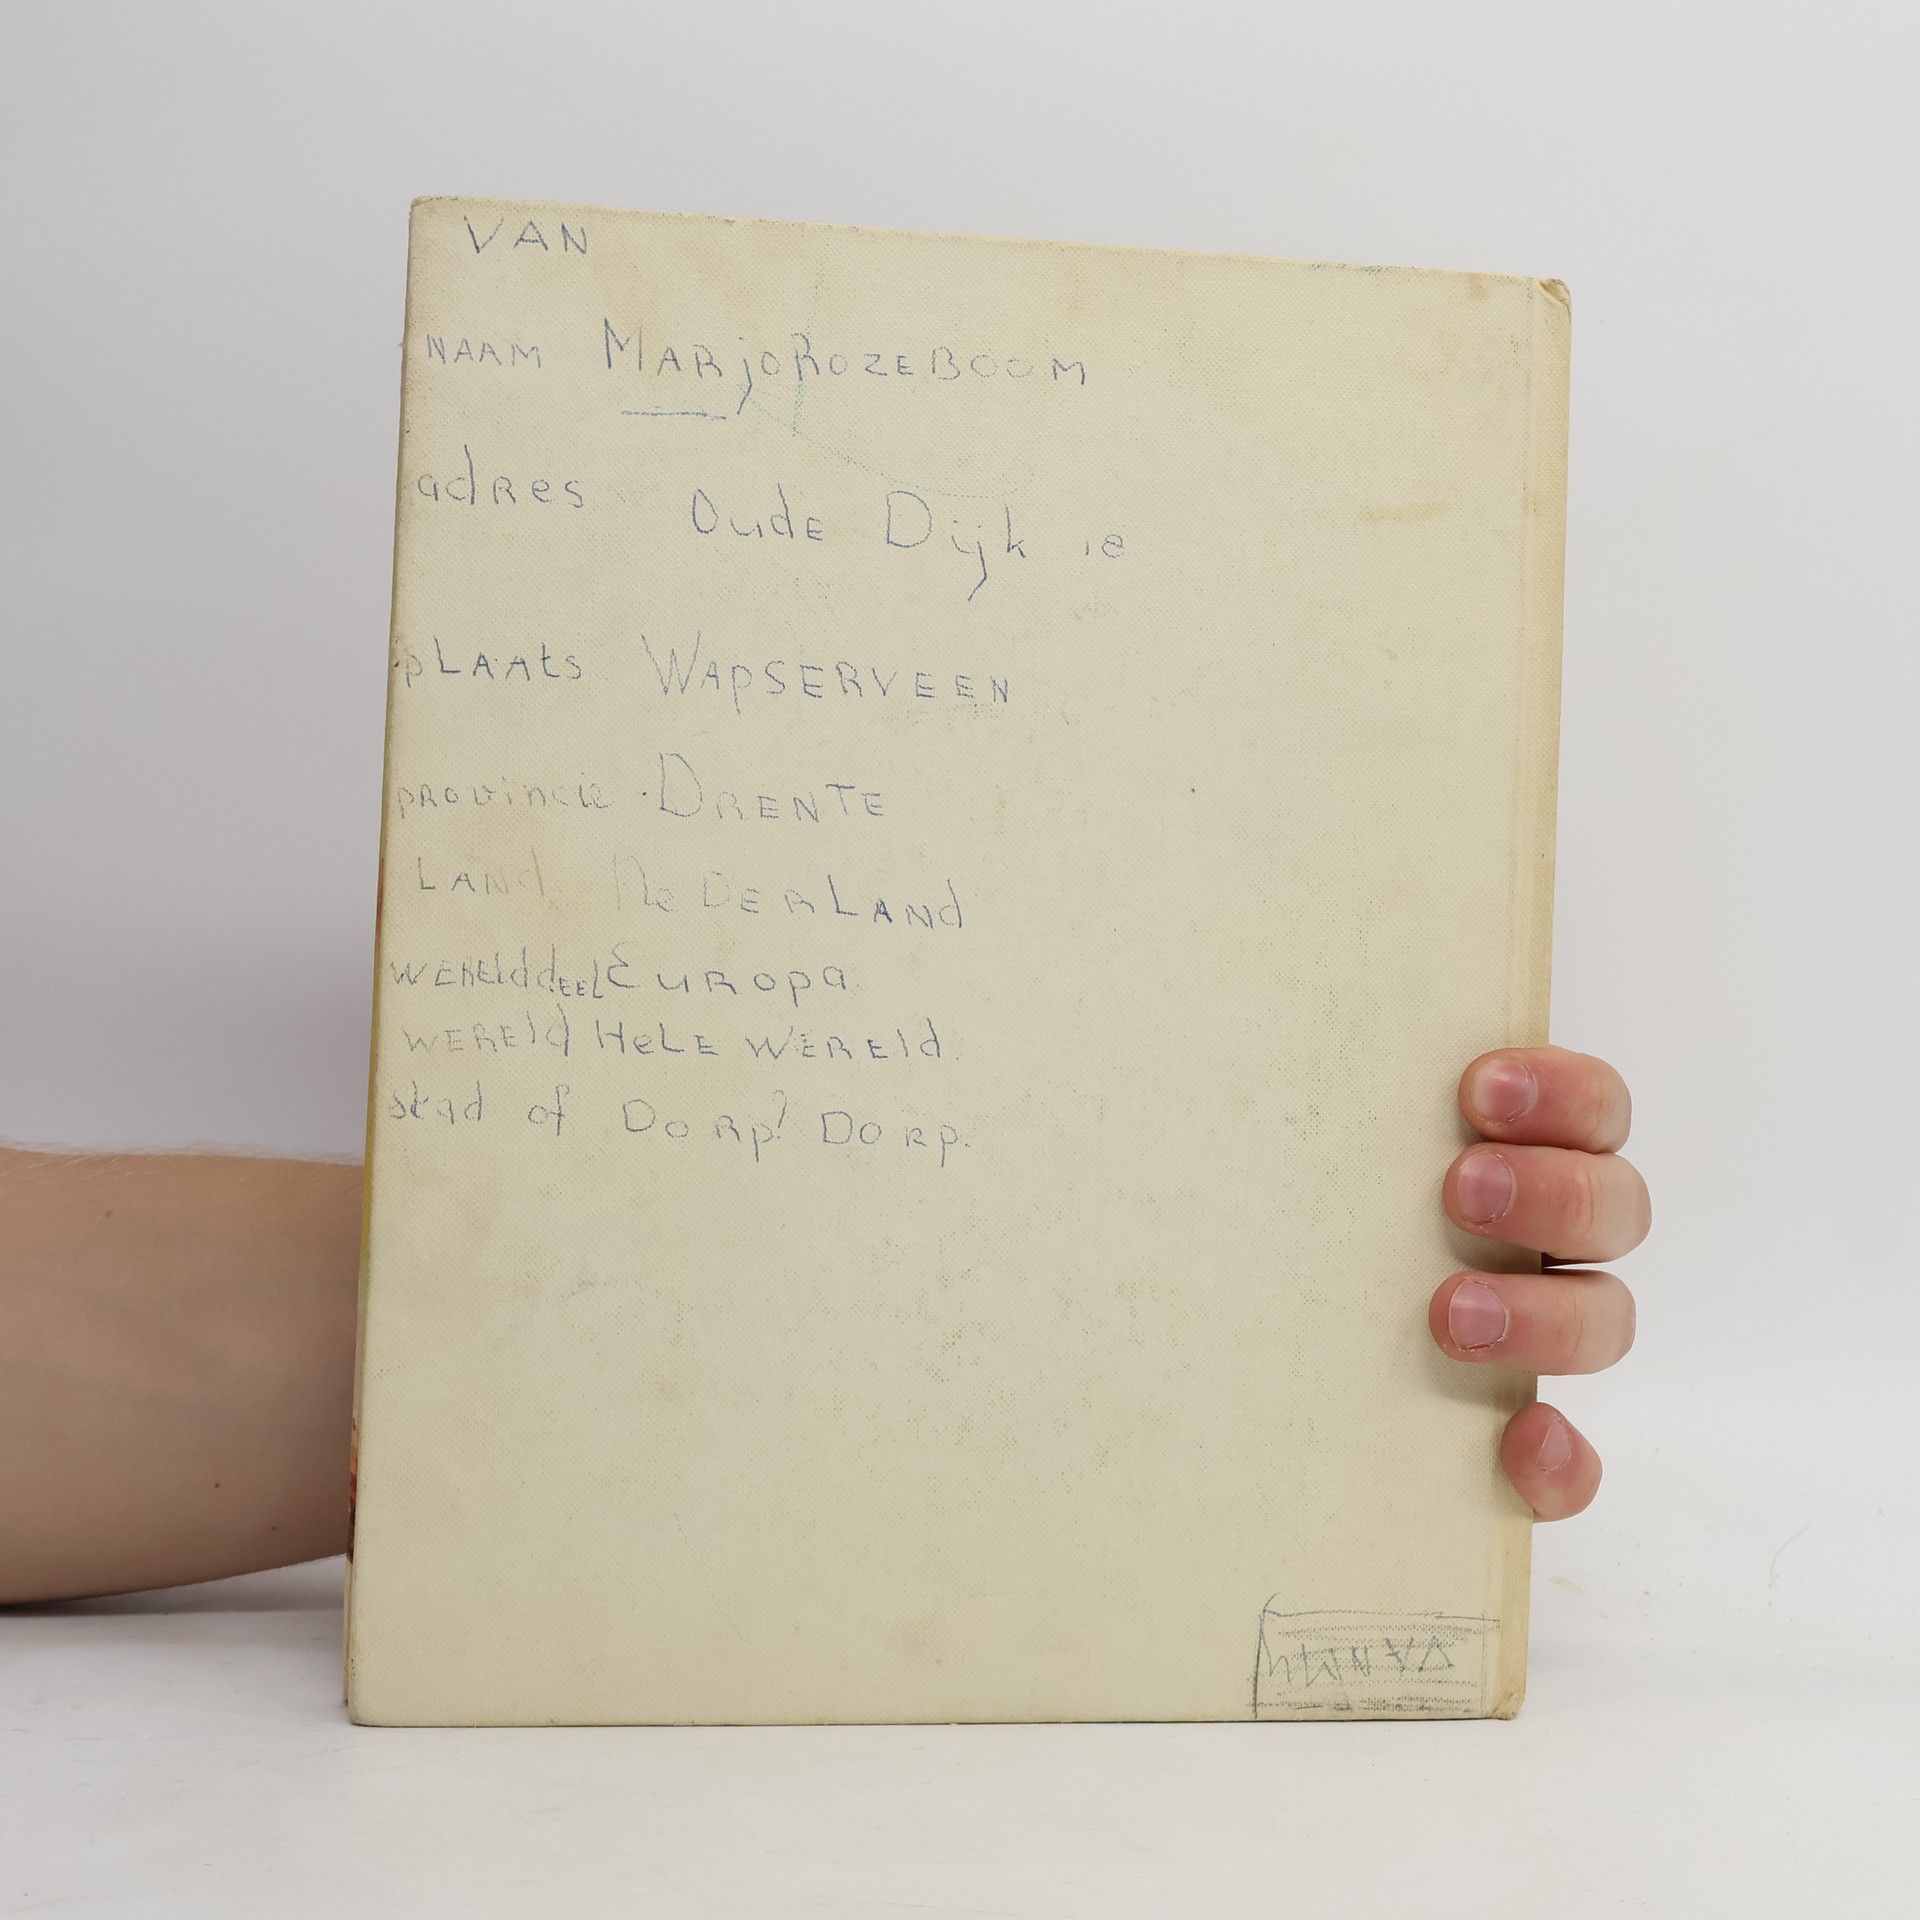 VAN
NAAM MARjo ROZEBOOM
adres Oude Dijk
pLAAts WAPSERVEEN
PROVincie DRENTE
LANd NeDERLANd
WEREldDEEL EUROPa.
WERELd HeLE WERELd.
stad of DoRp? DoRp.
VAN Mij